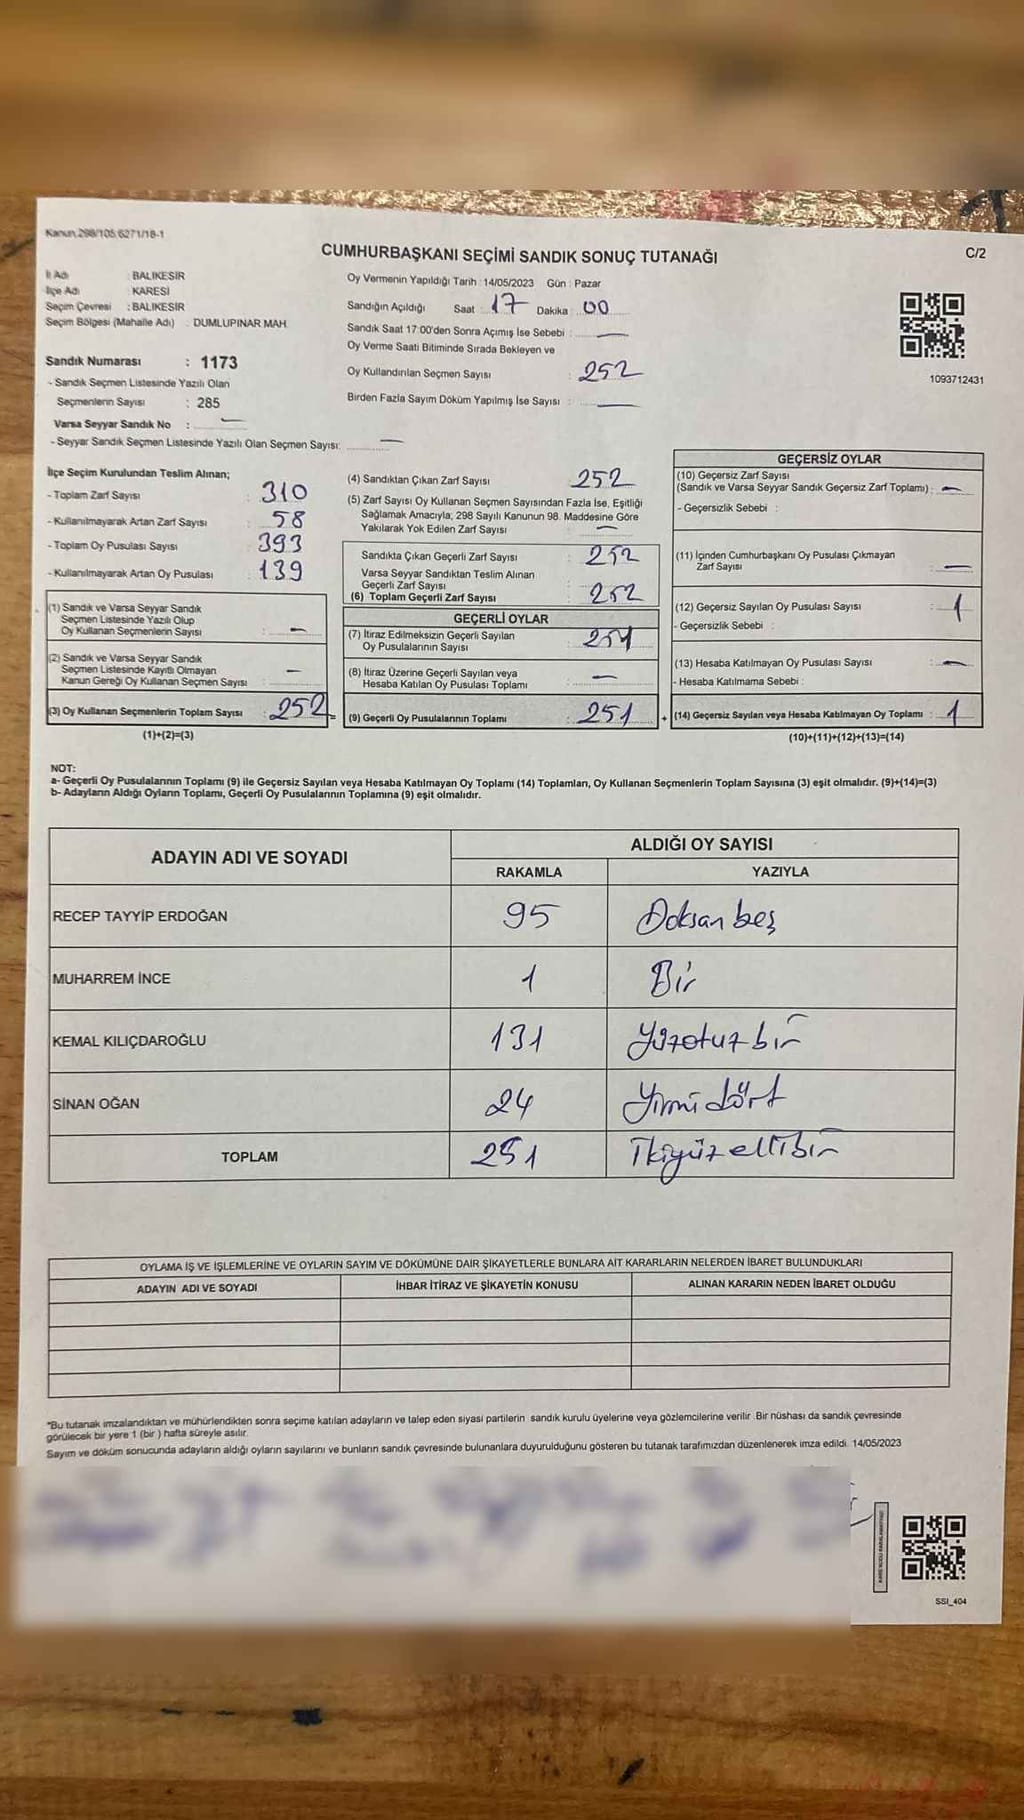 Kanun,298/105,6271/18-1
CUMHURBAŞKANI SEÇİMİ SANDIK SONUÇ TUTANAĞI
C/2
İl Adı : BALIKESİR
İlçe Adı : KARESİ
Seçim Çevresi : BALIKESİR
Seçim Bölgesi (Mahalle Adı) : DUMLUPINAR MAH.
Oy Vermenin Yapıldığı Tarih : 14/05/2023 Gün : Pazar
Sandığın Açıldığı Saat : 17 Dakika : 00
Sandık Saat 17:00'den Sonra Açımış İse Sebebi : —
Oy Verme Saati Bitiminde Sırada Bekleyen ve
Oy Kullandırılan Seçmen Sayısı : 252
Birden Fazla Sayım Döküm Yapılmış İse Sayısı : —
1093712431
Sandık Numarası : 1173
- Sandık Seçmen Listesinde Yazılı Olan
Seçmenlerin Sayısı : 285
Varsa Seyyar Sandık No : —
- Seyyar Sandık Seçmen Listesinde Yazılı Olan Seçmen Sayısı: —
İlçe Seçim Kurulundan Teslim Alınan;
- Toplam Zarf Sayısı : 310
- Kullanılmayarak Artan Zarf Sayısı : 58
- Toplam Oy Pusulası Sayısı : 393
- Kullanılmayarak Artan Oy Pusulası : 139
(1) Sandık ve Varsa Seyyar Sandık
Seçmen Listesinde Yazılı Olup
Oy Kullanan Seçmenlerin Sayısı : —
(2) Sandık ve Varsa Seyyar Sandık
Seçmen Listesinde Kayıtlı Olmayan
Kanun Gereği Oy Kullanan Seçmen Sayısı : —
(3) Oy Kullanan Seçmenlerin Toplam Sayısı : 252
(1)+(2)=(3)
=
(4) Sandıktan Çıkan Zarf Sayısı : 252
(5) Zarf Sayısı Oy Kullanan Seçmen Sayısından Fazla İse, Eşitliği
Sağlamak Amacıyla; 298 Sayılı Kanunun 98. Maddesine Göre
Yakılarak Yok Edilen Zarf Sayısı : —
Sandıkta Çıkan Geçerli Zarf Sayısı : 252
Varsa Seyyar Sandıktan Teslim Alınan
Geçerli Zarf Sayısı
(6) Toplam Geçerli Zarf Sayısı : 252
GEÇERLİ OYLAR
(7) İtiraz Edilmeksizin Geçerli Sayılan
Oy Pusulalarının Sayısı : 251
(8) İtiraz Üzerine Geçerli Sayılan veya
Hesaba Katılan Oy Pusulası Toplamı : —
(9) Geçerli Oy Pusulalarının Toplamı : 251
+
GEÇERSİZ OYLAR
(10) Geçersiz Zarf Sayısı
(Sandık ve Varsa Seyyar Sandık Geçersiz Zarf Toplamı) : —
- Geçersizlik Sebebi :
(11) İçinden Cumhurbaşkanı Oy Pusulası Çıkmayan
Zarf Sayısı : —
(12) Geçersiz Sayılan Oy Pusulası Sayısı : 1
- Geçersizlik Sebebi :
(13) Hesaba Katılmayan Oy Pusulası Sayısı : —
- Hesaba Katılmama Sebebi :
(14) Geçersiz Sayılan veya Hesaba Katılmayan Oy Toplamı : 1
(10)+(11)+(12)+(13)=(14)
NOT:
a- Geçerli Oy Pusulalarının Toplamı (9) ile Geçersiz Sayılan veya Hesaba Katılmayan Oy Toplamı (14) Toplamları, Oy Kullanan Seçmenlerin Toplam Sayısına (3) eşit olmalıdır. (9)+(14)=(3)
b- Adayların Aldığı Oyların Toplamı, Geçerli Oy Pusulalarının Toplamına (9) eşit olmalıdır.
ADAYIN ADI VE SOYADI ALDIĞI OY SAYISI
RAKAMLA YAZIYLA
RECEP TAYYİP ERDOĞAN 95 Doksan beş
MUHARREM İNCE 1 Bir
KEMAL KILIÇDAROĞLU 131 Yüzotuzbir
SİNAN OĞAN 24 Yirmi dört
TOPLAM 251 İkiyüz ellibir
OYLAMA İŞ VE İŞLEMLERİNE VE OYLARIN SAYIM VE DÖKÜMÜNE DAİR ŞİKAYETLERLE BUNLARA AİT KARARLARIN NELERDEN İBARET BULUNDUKLARI
ADAYIN ADI VE SOYADI İHBAR İTİRAZ VE ŞİKAYETİN KONUSU ALINAN KARARIN NEDEN İBARET OLDUĞU
*Bu tutanak imzalandıktan ve mühürlendikten sonra seçime katılan adayların ve talep eden siyasi partilerin sandık kurulu üyelerine veya gözlemcilerine verilir. Bir nüshası da sandık çevresinde
görülecek bir yere 1 (bir ) hafta süreyle asılır.
Sayım ve döküm sonucunda adayların aldığı oyların sayılarını ve bunların sandık çevresinde bulunanlara duyurulduğunu gösteren bu tutanak tarafımızdan düzenlenerek imza edildi. 14/05/2023
SSI_404